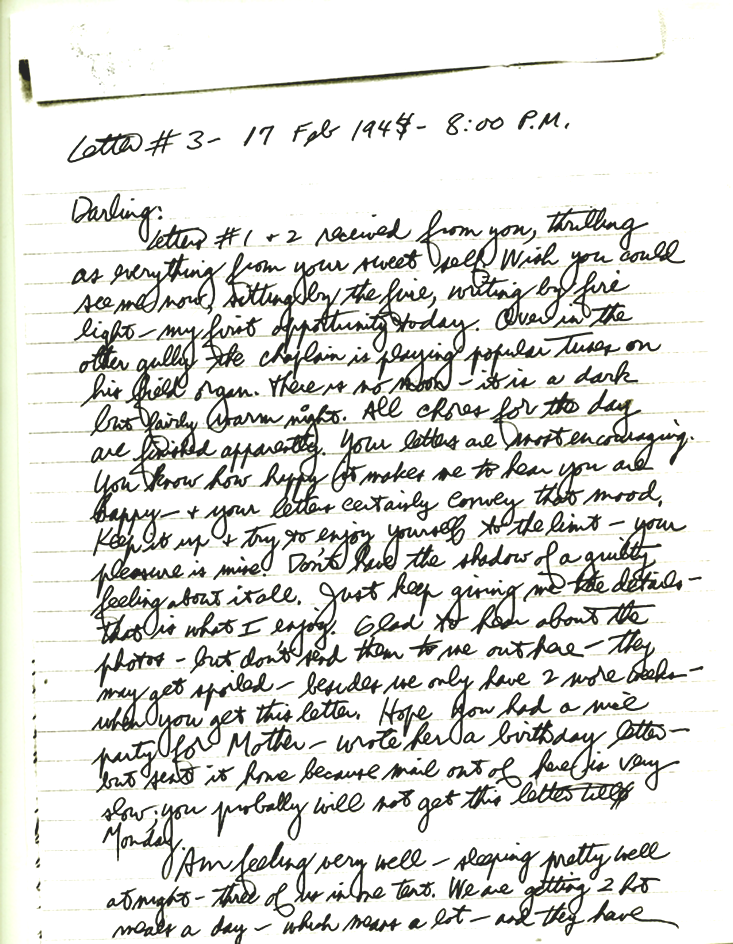 Letter # 3 - 17 Feb 1944 - 8:00 P.M.
Darling:
Letters #1 + 2 received from you, thrilling
as everything from your sweet self. Wish you could
see me now, sitting by the fire, writing by fire
light - my first opportunity today. Over in the
other gully the chaplain is playing popular tunes on
his field organ. There is no moon - it is a dark
but fairly warm night. All chores for the day
are finished apparently. Your letters are most encouraging.
You know how happy it makes me to hear you are
happy - + your letters certainly convey that mood.
Keep it up + try to enjoy yourself to the limit - your
pleasure is mine. Don't have the shadow of a guilty
feeling about it all. Just keep giving me the details -
that is what I enjoy. Glad to hear about the
photos - but don't send them to me out here - they
may get spoiled - besides we only have 2 more weeks -
when you get this letter. Hope you had a nice
party for Mother - wrote her a birthday letter -
but sent it home because mail out of here is very
slow; you probally will not get this letter till
Monday.
Am feeling very well - sleeping pretty well
at night - three of us in one tent. We are getting 2 hot
meals a day - which means a lot - and they have